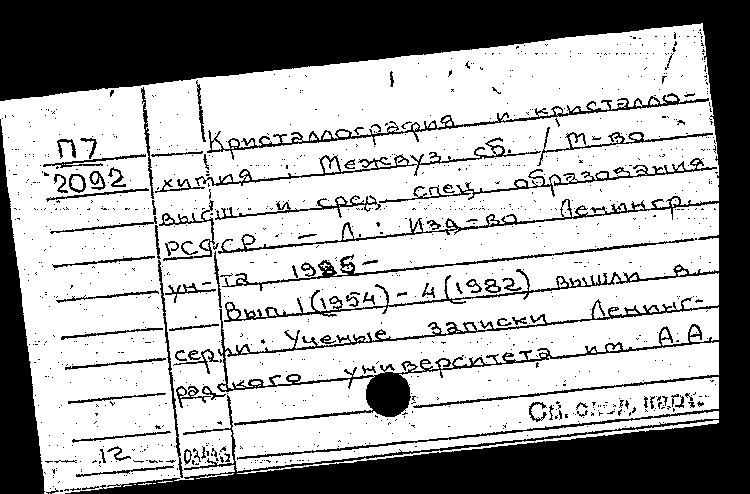 П7
2092
Кристаллография и кристалло-
химия : Межвуз. сб. / М-во
высш. и сред. спец. образования
РСФСР. — Л. : Изд-во Ленингр.
ун-та, 1985-
Вып. 1 (1954) - 4 (1982) вышли в
серии: Ученые записки Ленинг-
радского университета им. А.А.
См. след. карт.
12